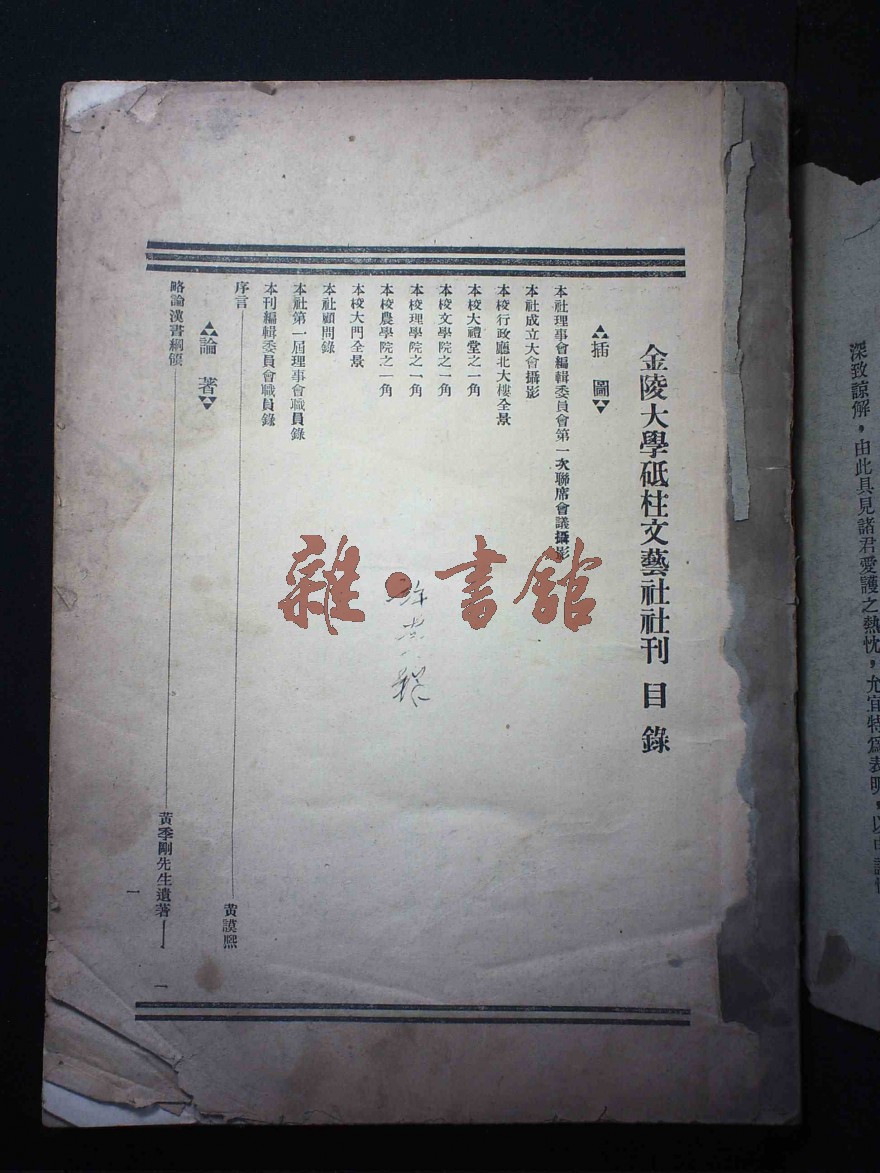 深致諒解，由此具見諸君愛護之熱忱，允宜特爲表明，以申謝
金陵大學砥柱文藝社社刊 目錄
插圖
本社理事會編輯委員會第一次聯席會議攝影
本社成立大會攝影
本校行政廳北大樓全景
本校大禮堂之一角
本校文學院之一角
本校理學院之一角
本校農學院之一角
本校大門全景
本社顧問錄
本社第一屆理事會職員錄
本刊編輯委員會職員錄
序言 黃謨熙
論著
略論漢書綱領 黃季剛先生遺著 一
一
雜·書館